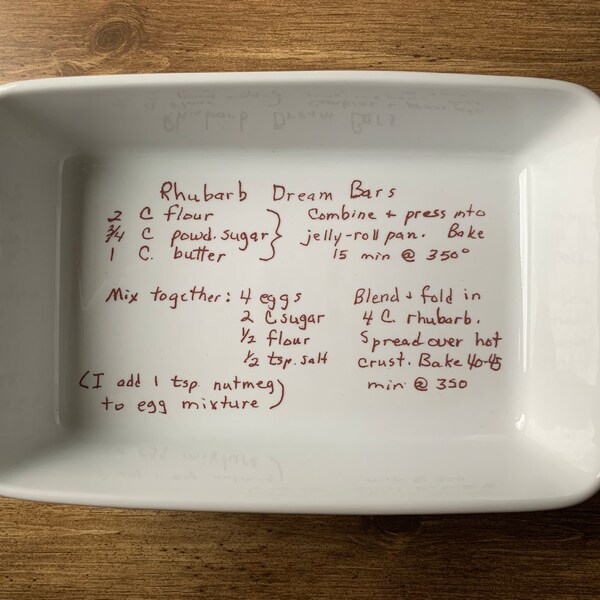 Rhubarb Dream Bars
2 C flour
3/4 C powd. sugar
1 C. butter
Combine + press into
jelly-roll pan. Bake
15 min @ 350°
Mix together: 4 eggs
2 C sugar
1/2 flour
1/2 tsp. salt
(I add 1 tsp. nutmeg
to egg mixture)
Blend + fold in
4 C. rhubarb.
Spread over hot
crust. Bake 40-45
min. @ 350